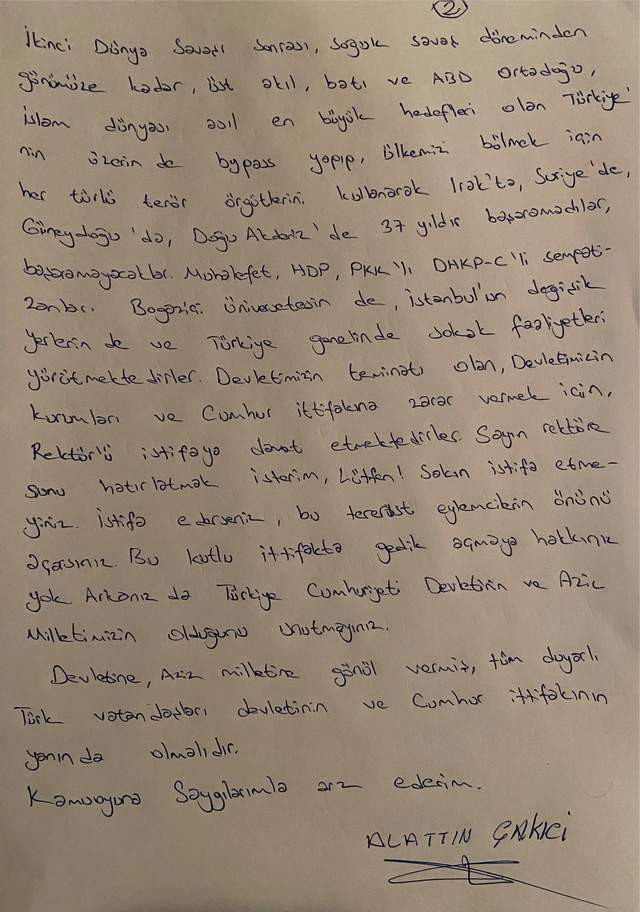 2
İkinci Dünya Savaşı sonrası, soğuk savaş döneminden
günümüze kadar, üst akıl, batı ve ABD Ortadoğu,
islam dünyası asıl en büyük hedefleri olan Türkiye'
nin üzerin de bypass yapıp, ülkemizi bölmek için
her türlü terör örgütlerini kullanarak Irak'ta, Suriye'de,
Güneydoğu'da, Doğu Akdeniz'de 37 yıldır başaramadılar,
başaramayacaklar. Muhalefet, HDP, PKK'lı DHKP-C'li sempati-
zanları. Bogaziçi üniversitesin de, istanbul'un degişik
yerlerin de ve Türkiye genelinde sokak faaliyetleri
yürütmektedirler. Devletimizin teminatı olan, Devletimizin
kurumları ve Cumhur ittifakına zarar vermek için,
Rektör'ü istifaya davet etmektedirler. Sayın rektöre
şunu hatırlatmak isterim, Lütfen! Sakın istifa etme-
yiniz. İstifa ederseniz, bu terörist eylemcilerin önünü
açarsınız. Bu kutlu ittifakta gedik açmaya hakkınız
yok Arkanız da Türkiye Cumhuriyeti Devletinin ve Aziz
Milletimizin olduğunu unutmayınız.
Devletine, Aziz milletine gönül vermiş, tüm duyarlı
Türk vatandaşları devletinin ve Cumhur ittifakının
yanında olmalıdır.
Kamuoyuna Saygılarımla arz ederim.
ALATTIN ÇAKICI